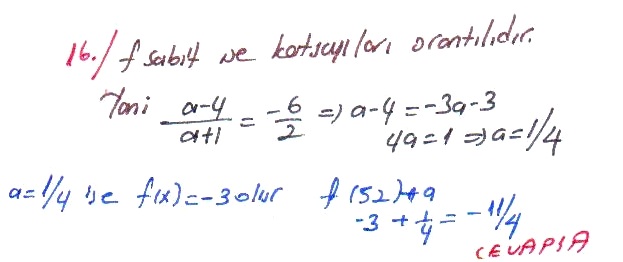 16./ f sabit ve katsayıları orantılıdır.
Yani a-4/a+1 = -6/2 => a-4 = -3a-3
4a=1 => a=1/4
a=1/4 ise f(x)=-3 olur f(52)+a
-3 + 1/4 = -11/4
CEVAP: A